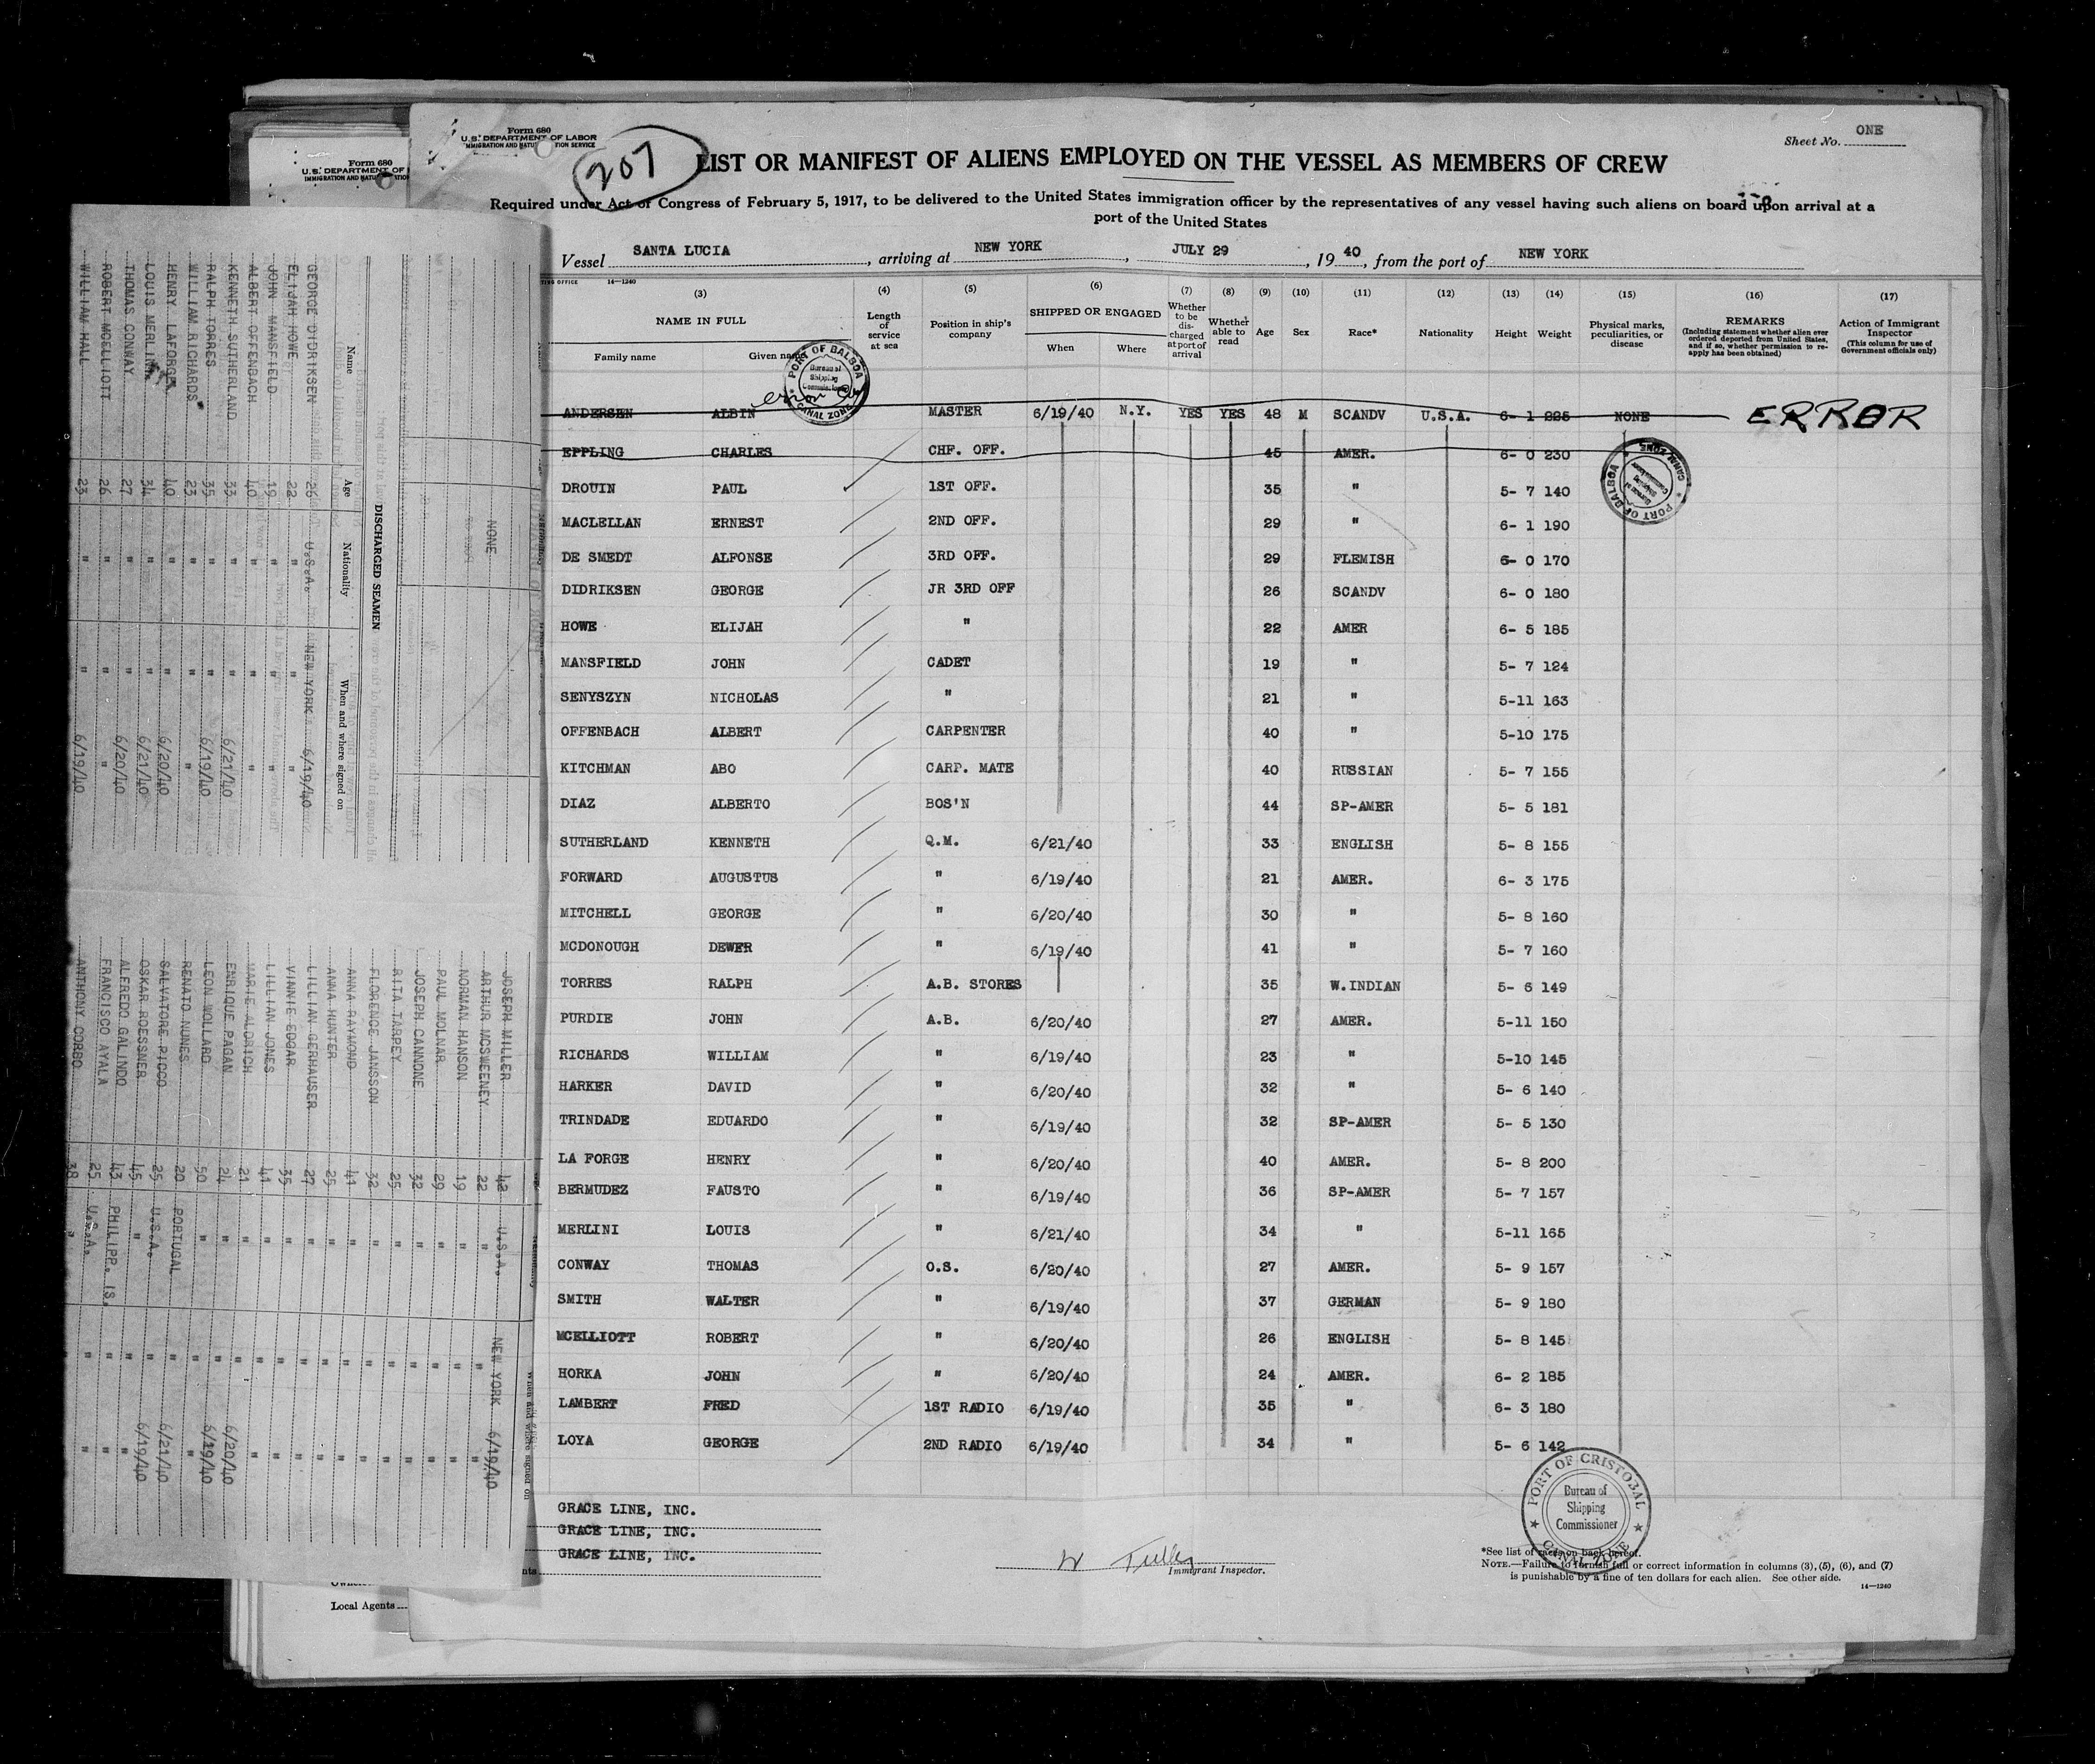 Form 680
U.S. DEPARTMENT OF LABOR
IMMIGRATION AND NATU TION SERVICE
Form 680
U.S. DEPARTMENT OF
IMMIGRATION AND NATU
207
Sheet No. ONE
LIST OR MANIFEST OF ALIENS EMPLOYED ON THE VESSEL AS MEMBERS OF CREW
Required under Act of Congress of February 5, 1917, to be delivered to the United States immigration officer by the representatives of any vessel having such aliens on board upon arrival at a
port of the United States
Vessel SANTA LUCIA, arriving at NEW YORK, JULY 29, 19 40, from the port of NEW YORK
14—1240
(3) (4) (5) (6) (7) (8) (9) (10) (11) (12) (13) (14) (15) (16) (17)
NAME IN FULL
Family name Given name
Length of service at sea
Position in ship's company
SHIPPED OR ENGAGED
When Where
Whether to be discharged at port of arrival
Whether able to read
Age
Sex
Race*
Nationality
Height
Weight
Physical marks, peculiarities, or disease
REMARKS
(Including statement whether alien ever ordered deported from United States, and if so, whether permission to reapply has been obtained)
Action of Immigrant Inspector
(This column for use of Government officials only)
PORT OF BALBOA
Bureau of
Shipping
Commissioner
CANAL ZONE
ANDERSEN ALBIN MASTER 6/19/40 N.Y. YES YES 48 M SCANDV U.S.A. 6- 1 225 NONE ERROR
EPPLING CHARLES CHF. OFF. 45 AMER. 6- 0 230
PORT OF BALBOA
Bureau of
Shipping
Commissioner
CANAL ZONE
DROUIN PAUL 1ST OFF. 35 " 5- 7 140
MACLELLAN ERNEST 2ND OFF. 29 " 6- 1 190
DE SMEDT ALFONSE 3RD OFF. 29 FLEMISH 6- 0 170
DIDRIKSEN GEORGE JR 3RD OFF 26 SCANDV 6- 0 180
HOWE ELIJAH " 22 AMER 6- 5 185
MANSFIELD JOHN CADET 19 " 5- 7 124
SENYSZYN NICHOLAS " 21 " 5-11 163
OFFENBACH ALBERT CARPENTER 40 " 5-10 175
KITCHMAN ABO CARP. MATE 40 RUSSIAN 5- 7 155
DIAZ ALBERTO BOS'N 44 SP-AMER 5- 5 181
SUTHERLAND KENNETH Q.M. 6/21/40 33 ENGLISH 5- 8 155
FORWARD AUGUSTUS " 6/19/40 21 AMER. 6- 3 175
MITCHELL GEORGE " 6/20/40 30 " 5- 8 160
MCDONOUGH DEWER " 6/19/40 41 " 5- 7 160
TORRES RALPH A.B. STORES 35 W.INDIAN 5- 6 149
PURDIE JOHN A.B. 6/20/40 27 AMER. 5-11 150
RICHARDS WILLIAM " 6/19/40 23 " 5-10 145
HARKER DAVID " 6/20/40 32 " 5- 6 140
TRINDADE EDUARDO " 6/19/40 32 SP-AMER 5- 5 130
LA FORGE HENRY " 6/20/40 40 AMER. 5- 8 200
BERMUDEZ FAUSTO " 6/19/40 36 SP-AMER 5- 7 157
MERLINI LOUIS " 6/21/40 34 " 5-11 165
CONWAY THOMAS O.S. 6/20/40 27 AMER. 5- 9 157
SMITH WALTER " 6/19/40 37 GERMAN 5- 9 180
MCELLIOTT ROBERT " 6/20/40 26 ENGLISH 5- 8 145
HORKA JOHN " 6/20/40 24 AMER. 6- 2 185
LAMBERT FRED 1ST RADIO 6/19/40 35 " 6- 3 180
LOYA GEORGE 2ND RADIO 6/19/40 34 " 5- 6 142
GRACE LINE, INC.
GRACE LINE, INC.
GRACE LINE, INC.
Immigrant Inspector.
PORT OF CRISTOBAL
Bureau of
Shipping
Commissioner
CANAL ZONE
*See list of races on back hereof.
NOTE.—Failure to furnish full or correct information in columns (3), (5), (6), and (7)
is punishable by a fine of ten dollars for each alien. See other side.
14—1240
Local Agents
NONE
DISCHARGED SEAMEN
Name Age Nationality When and where signed on
GEORGE DIDRIKSEN 26 U.S.A. NEW YORK 6/19/40
ELIJAH HOWE 22 " " "
JOHN MANSFIELD 19 " " "
ALBERT OFFENBACH 40 " " "
KENNETH SUTHERLAND 33 " " 6/21/40
RALPH TORRES 35 " " 6/19/40
WILLIAM RICHARDS 23 " " "
HENRY LAFORGE 40 " " 6/20/40
LOUIS MERLINI 34 " " 6/21/40
THOMAS CONWAY 27 " " 6/20/40
ROBERT MCELLIOTT 26 " " "
WILLIAM HALL 23 " " 6/19/40
JOSEPH MILLER 42 U.S.A. NEW YORK 6/19/40
ARTHUR MCSWEENEY 22 " " "
NORMAN HANSON 19 " " "
PAUL MOLNAR 29 " " "
JOSEPH CANNONE 32 " " "
RITA TARPEY 25 " " "
FLORENCE JANSSON 32 " " "
ANNA RAYMOND 41 " " "
ANNA HUNTER 25 " " "
LILLIAN GERHAUSER 27 " " "
VINNIE EDGAR 35 " " "
LILLIAN JONES 41 " " "
MARIE ALDRICH 21 " " "
ENRIQUE PAGAN 24 " " 6/20/40
LEON WOLLARD 50 " " 6/19/40
RENATO NUNES 20 PORTUGAL " "
SALVATORE PICCO 25 U.S.A. " 6/21/40
OSKAR ROESSNER 45 " " 6/19/40
ALFREDO GALINDO 43 PHILIPP. IS. " "
FRANCISCO AYALA 25 U.S.A. " "
ANTHONY CORBO 38 " "